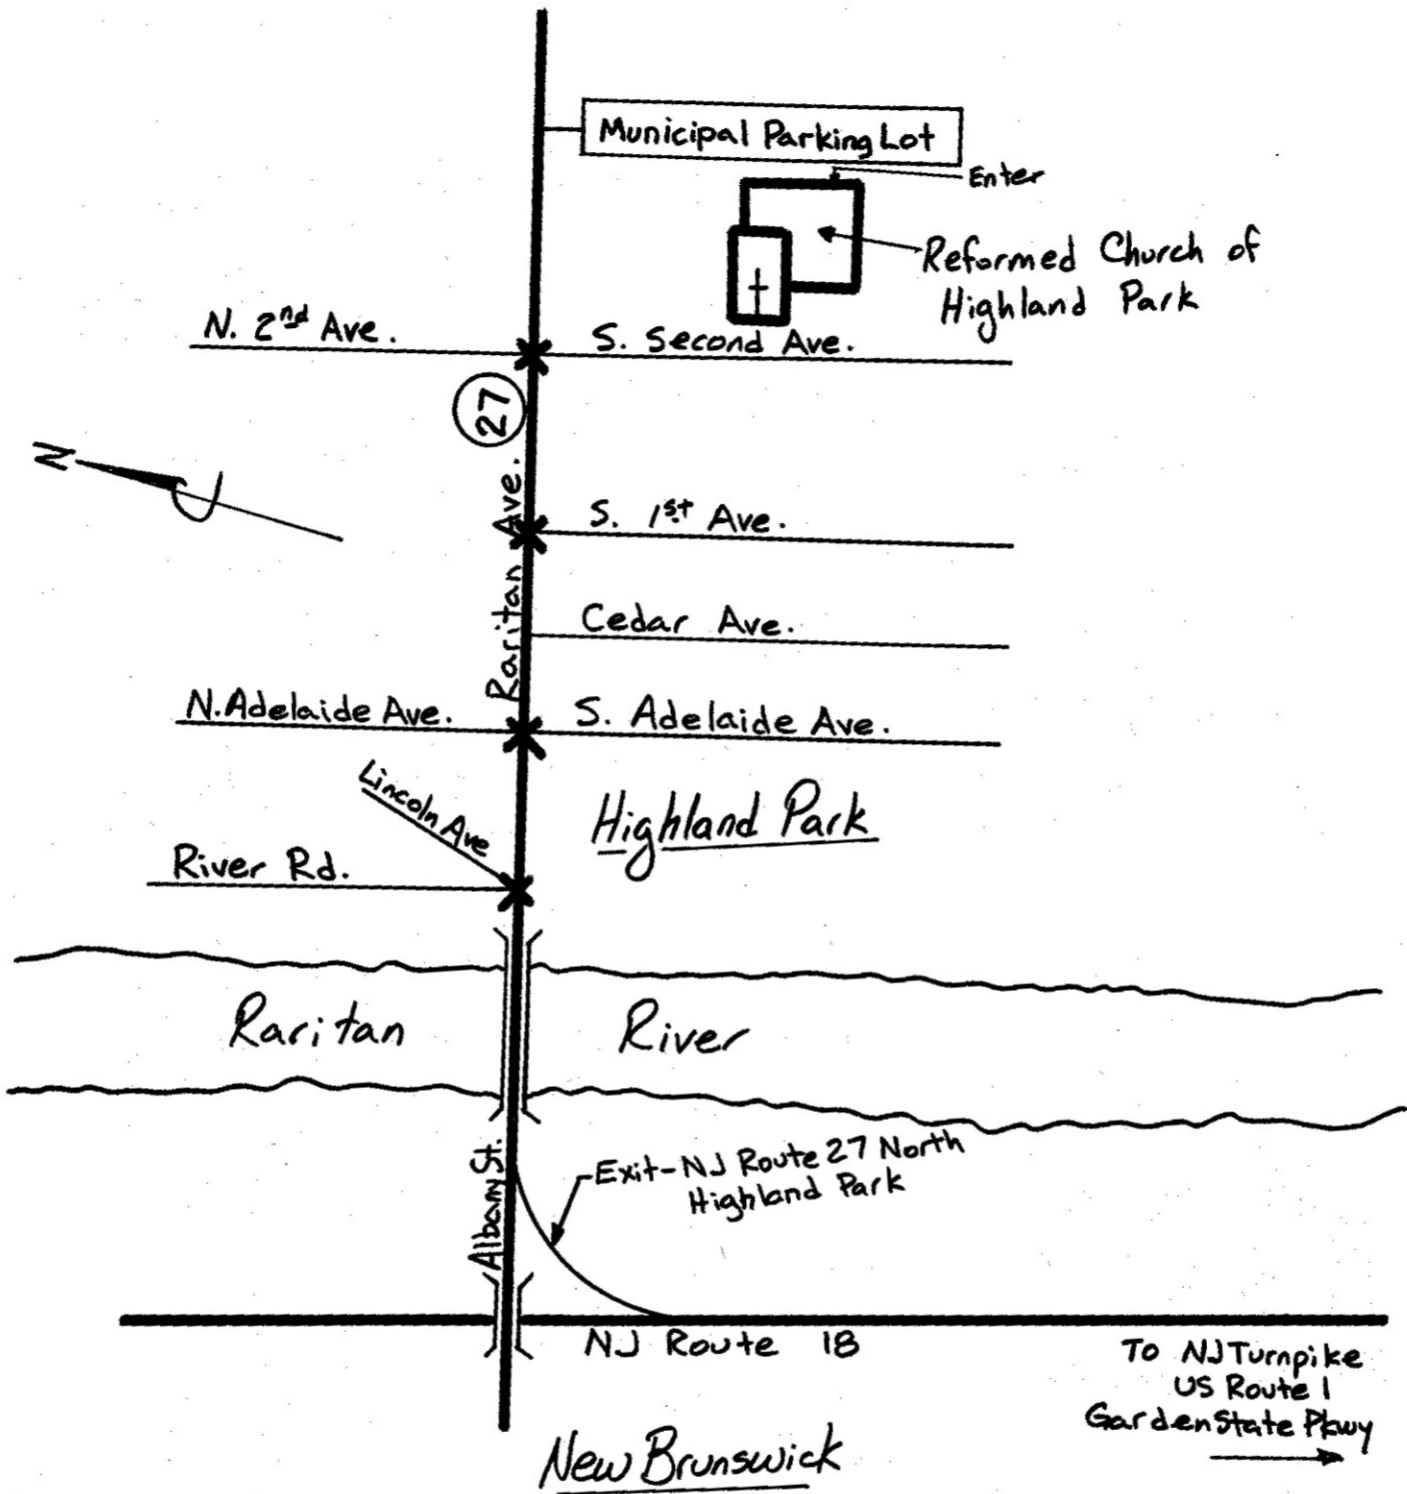 Municipal Parking Lot
Enter
Reformed Church of
Highland Park
N. 2nd Ave.
S. Second Ave.
27
N
Raritan Ave.
S. 1st Ave.
Cedar Ave.
N. Adelaide Ave.
S. Adelaide Ave.
Lincoln Ave
Highland Park
River Rd.
Raritan River
Albany St.
Exit-NJ Route 27 North
Highland Park
NJ Route 18
To NJ Turnpike
US Route 1
Garden State Pkwy
New Brunswick